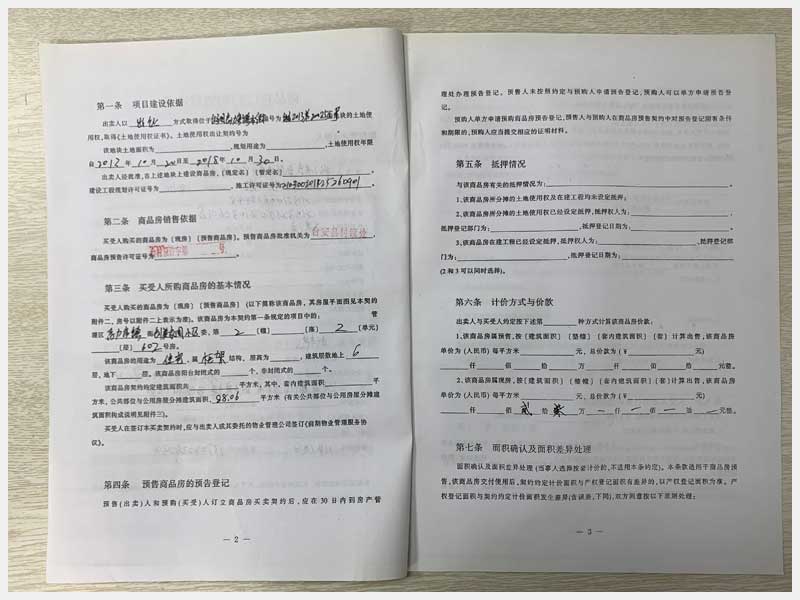 第一条　项目建设依据
出卖人以 出让 方式取得位于 编号为 地块的土地使
用权,取得《土地使用权证书》。土地使用权出让契约号为
该地块土地面积为 ,规划用途为 ,土地使用权年限
自 2012 年 10 月 20 日至 2018 年 10 月 30 日。
出卖人经批准,在上述地块上建设商品房,(现定名)(暂定名) ,
建设工程规划许可证号为 ,施工许可证号为 。
第二条　商品房销售依据
买受人购买的商品房为〔现房〕〔预售商品房〕。预售商品房批准机关为 ,
商品房预售许可证号为 。
第三条　买受人所购商品房的基本情况
买受人购买的商品房为〔现房〕〔预售商品房〕(以下简称该商品房,其房屋平面图见本契约
附件二,房号以附件二上表示为准)。该商品房为本契约第一条规定的项目中的: 管
理区 小区 委,第 2 (幢) (座) 2 (单元)
(层) 602 号房。
该商品房的用途为 住宅 ,属 框架 结构,层高为 ,建筑层数地上 6
层,地下 层。该商品房阳台封闭式的 个、非封闭式的 个。
该商品房契约约定建筑面积共 平方米,其中,套内建筑面积 平
方米,公共部位与公用房屋分摊建筑面积 98.06 平方米(有关公共部位与公用房屋分摊建
筑面积构成说明见附件三)。
买受人在签订本买卖契约时,应与出卖人或其委托的物业管理公司签订《前期物业管理服务协
议》。
第四条　预售商品房的预告登记
预售(出卖)人和预购(买受)人订立商品房买卖契约后,应在30日内到房产管
— 2 —
理处办理预告登记。预售人未按照约定与预购人申请预告登记,预购人可以单方申请预告登
记。
预购人单方申请预购商品房预告登记,预售人与预购人在商品房预售契约中对预告登记附有条件
和期限的,预购人应当提交相应的证明材料。
第五条　抵押情况
与该商品房有关的抵押情况为: 。
1.该商品房所分摊的土地使用权及在建工程均未设定抵押;
2.该商品房所分摊的土地使用权已经设定抵押,抵押权人为: ,
抵押登记部门为: ,抵押登记日期为: 。
3.该商品房在建工程已经设定抵押,抵押权人为: ,抵押登记部
门为: ,抵押登记日期为: 。
(2和3可以同时选择)。
第六条　计价方式与价款
出卖人与买受人约定按下述第 种方式计算该商品房价款:
1.该商品房属预售,按〔建筑面积〕〔整幢〕〔套内建筑面积〕〔套〕计算出售,该商品房
单价为(人民币)每平方米 元,总价款为(￥ 元)
仟 佰 拾 万 仟 佰 拾 元整。
2.该商品房属现房,按〔建筑面积〕〔整幢〕〔套内建筑面积〕〔套〕计算出售,该商品房
单价为(人民币)每平方米 元,总价款为(￥ 元)
仟 佰 贰 拾 万 仟 佰 拾 元整。
第七条　面积确认及面积差异处理
面积确认及面积差异处理(当事人选择按套计价的,不适用本条约定)。本条款适用于商品房预
售,该商品房交付使用后,契约约定计价面积与产权登记面积有差异的,以产权登记面积为准。产
权登记面积与契约约定计价面积发生差异(含误差,下同),双方同意按以下原则处理:
— 3 —